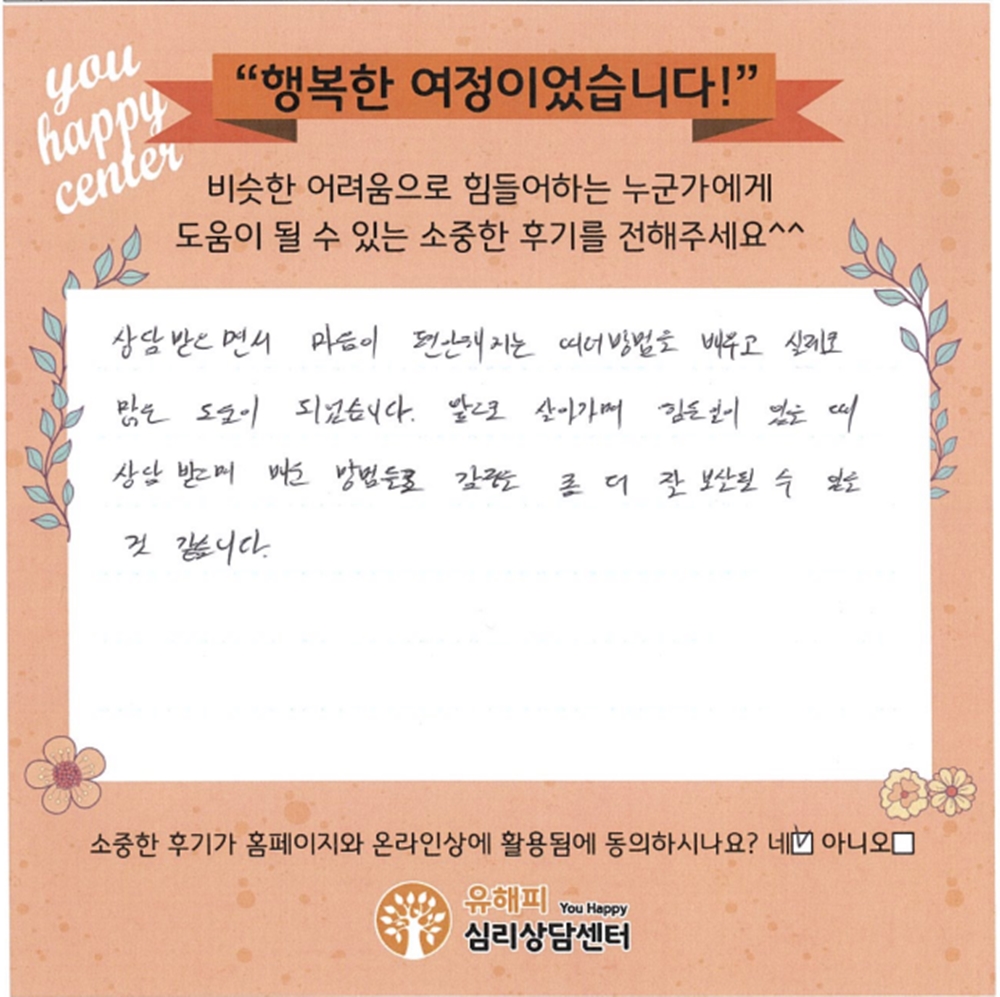 you
happy
center
“행복한 여정이었습니다!”
비슷한 어려움으로 힘들어하는 누군가에게
도움이 될 수 있는 소중한 후기를 전해주세요^^
상담 받으면서 마음이 편안해지는 방법을 배우고 실제로
많은 도움이 되었습니다. 앞으로 살아가며 힘든 일이 있을 때
상담 받으며 배운 방법들로 더 잘 수 있을
것 같습니다.
소중한 후기가 홈페이지와 온라인상에 활용됨에 동의하시나요? 네 아니오
유해피 You Happy
심리상담센터